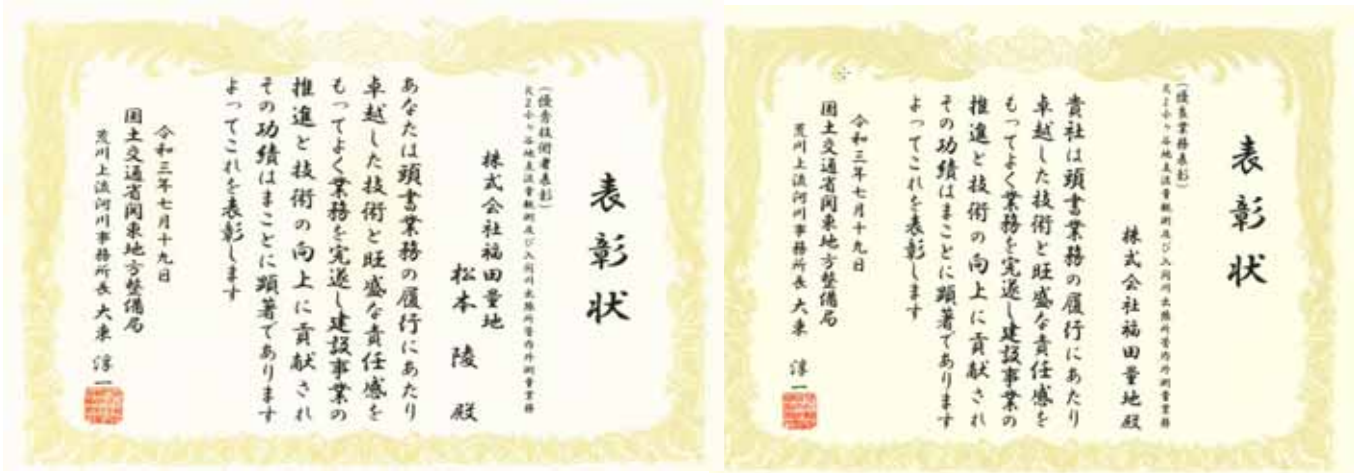 表彰状
(優秀技術者表彰)
R2小ヶ谷地点流量観測及び入間川出張所管内外測量業務
株式会社福田量地
松本 陵 殿
あなたは頭書業務の履行にあたり
卓越した技術と旺盛な責任感を
もってよく業務を完遂し建設事業の
推進と技術の向上に貢献され
その功績はまことに顕著であります
よってこれを表彰します
令和三年七月十九日
国土交通省関東地方整備局
荒川上流河川事務所長 大束 淳一
表彰状
(優良業務表彰)
R2小ヶ谷地点流量観測及び入間川出張所管内外測量業務
株式会社福田量地殿
貴社は頭書業務の履行にあたり
卓越した技術と旺盛な責任感を
もってよく業務を完遂し建設事業の
推進と技術の向上に貢献され
その功績はまことに顕著であります
よってこれを表彰します
令和三年七月十九日
国土交通省関東地方整備局
荒川上流河川事務所長 大束 淳一